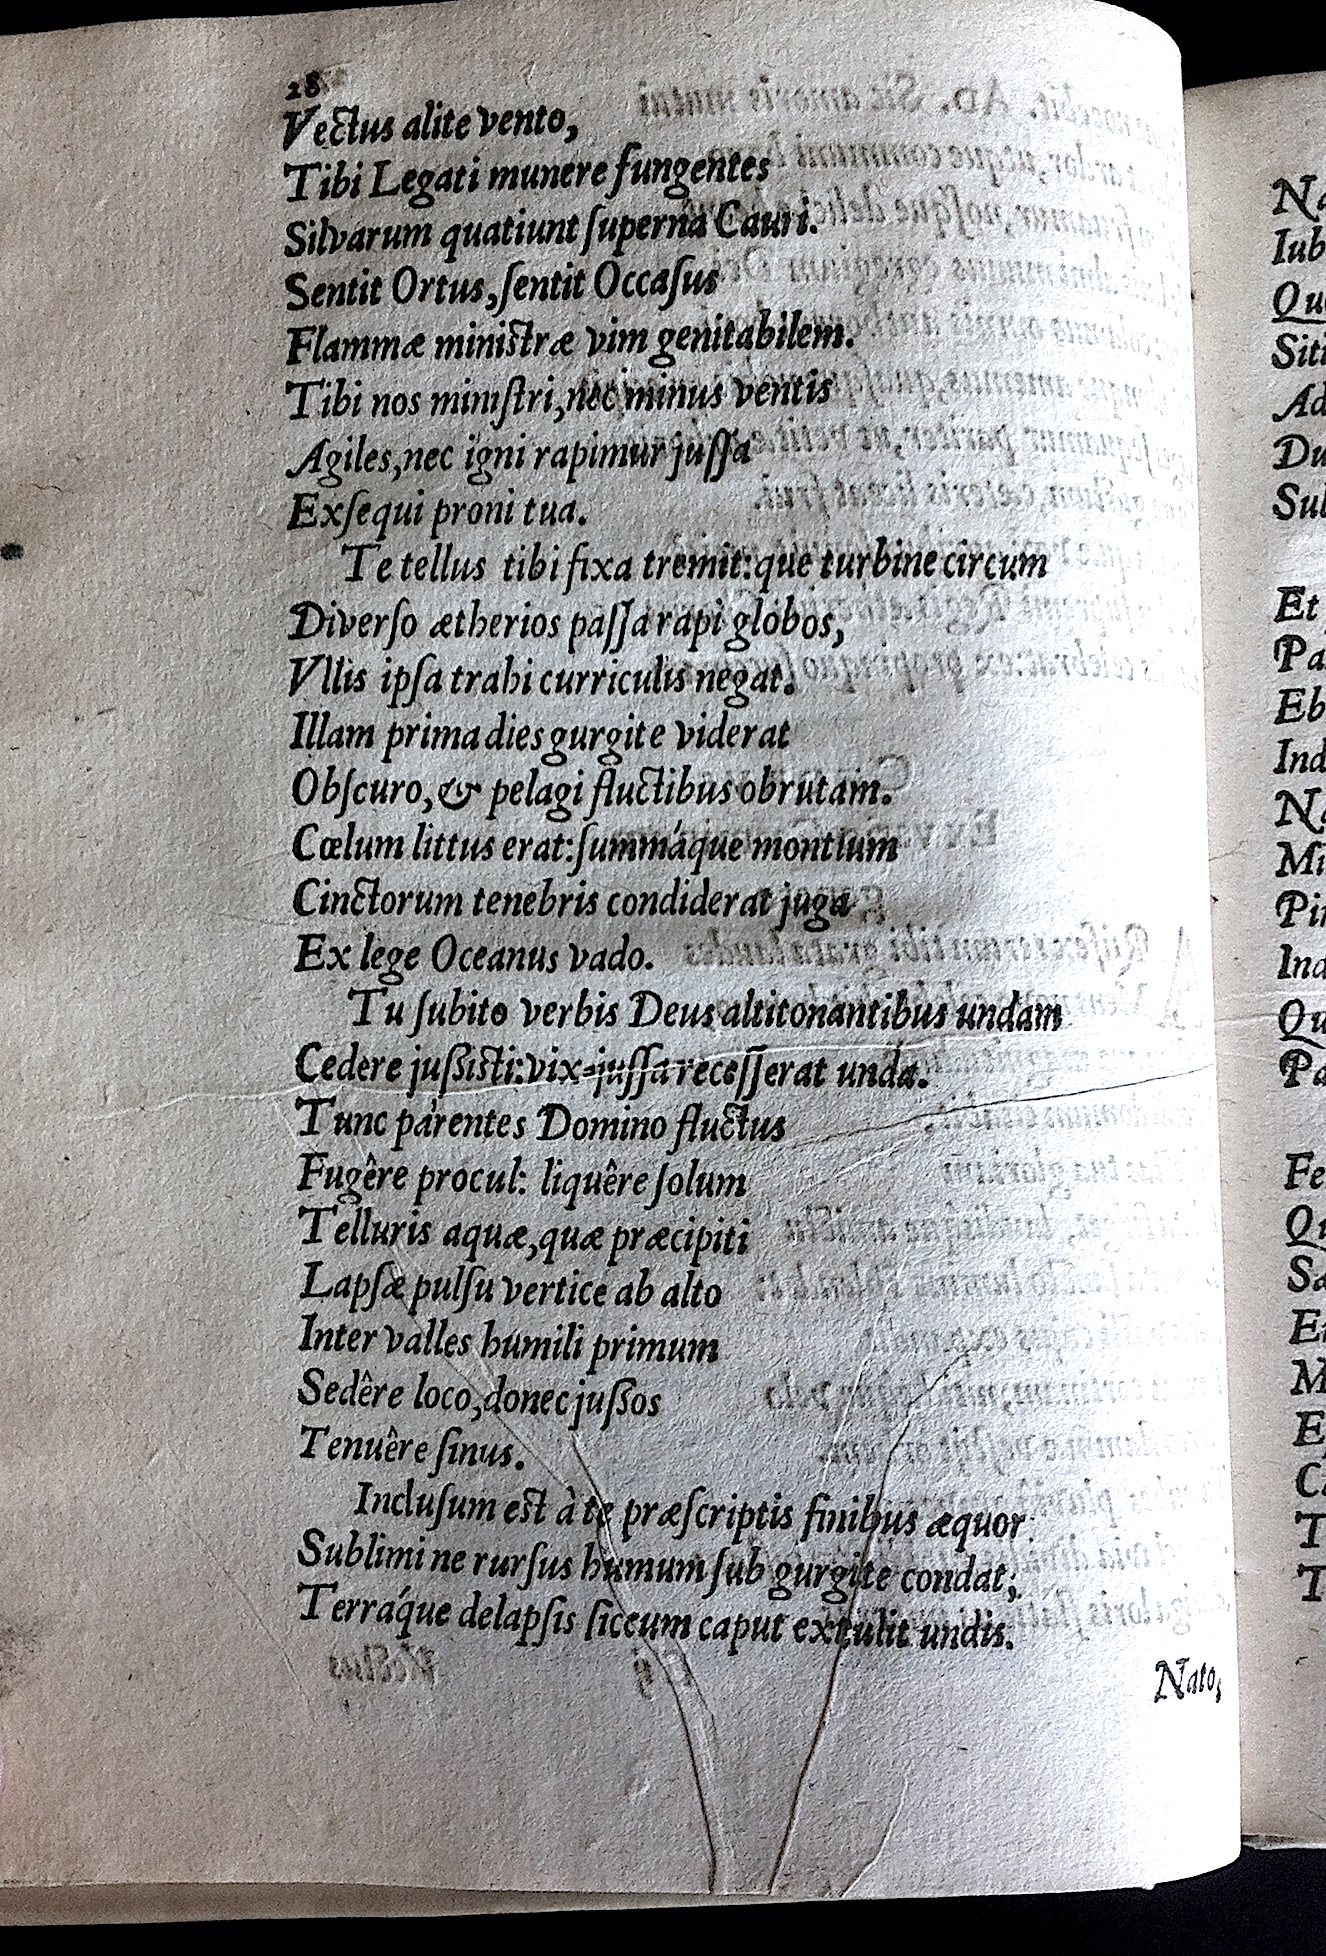 28
Vectus alite vento,
Tibi Legati munere fungentes
Silvarum quatiunt ſuperna Cauri.
Sentit Ortus, ſentit Occaſus
Flammæ miniſtræ vim genitabilem.
Tibi nos miniſtri, nec minus ventis
Agiles, nec igni rapimur juſſa
Exſequi proni tua.
Te tellus tibi fixa tremit: que turbine circum
Diverſo ætherios paſſa rapi globos,
Vllis ipſa trahi curriculis negat.
Illam prima dies gurgite viderat
Obſcuro, & pelagi fluctibus obrutam.
Cœlum littus erat: ſummáque montium
Cinctorum tenebris condiderat juga
Ex lege Oceanus vado.
Tu ſubito verbis Deus altitonantibus undam
Cedere juſsiſti: vix-juſſa receſſerat unda.
Tunc parentes Domino fluctus
Fugêre procul: liquêre ſolum
Telluris aquæ, quæ præcipiti
Lapſæ pulſu vertice ab alto
Inter valles humili primum
Sedêre loco, donec juſsos
Tenuêre ſinus.
Incluſum eſt à te præſcriptis finibus æquor:
Sublimi ne rurſus humum ſub gurgite condat;
Terráque delapſis ſiccum caput extulit undis.
Nato,
Na
Iub
Qu
Siti
Ad
Du
Sul
Et
Pa
Eb
Ind
Na
Mi
Pir
Ind
Qu
Pa
Fe
Qu
Sa
Et
M
E
C
T
T